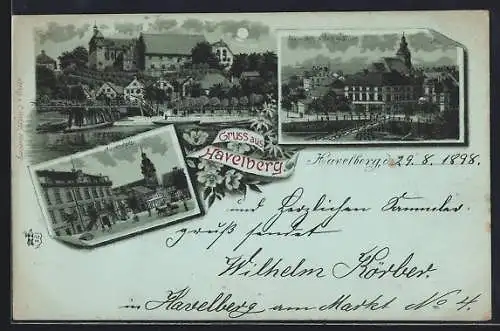 Gruss aus
Havelberg.
Havelberg, 29. 8. 1898.
und herzlichen Sammler-
gruß sendet
Wilhelm Körber.
in Havelberg am Markt No 4.